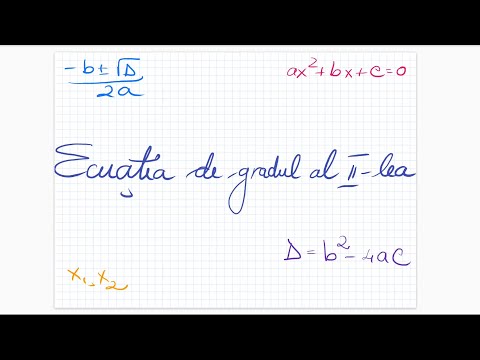 -b±√Δ
2a
ax²+bx+c=0
Ecuația de gradul al II-lea
Δ=b²-4ac
x₁,x₂